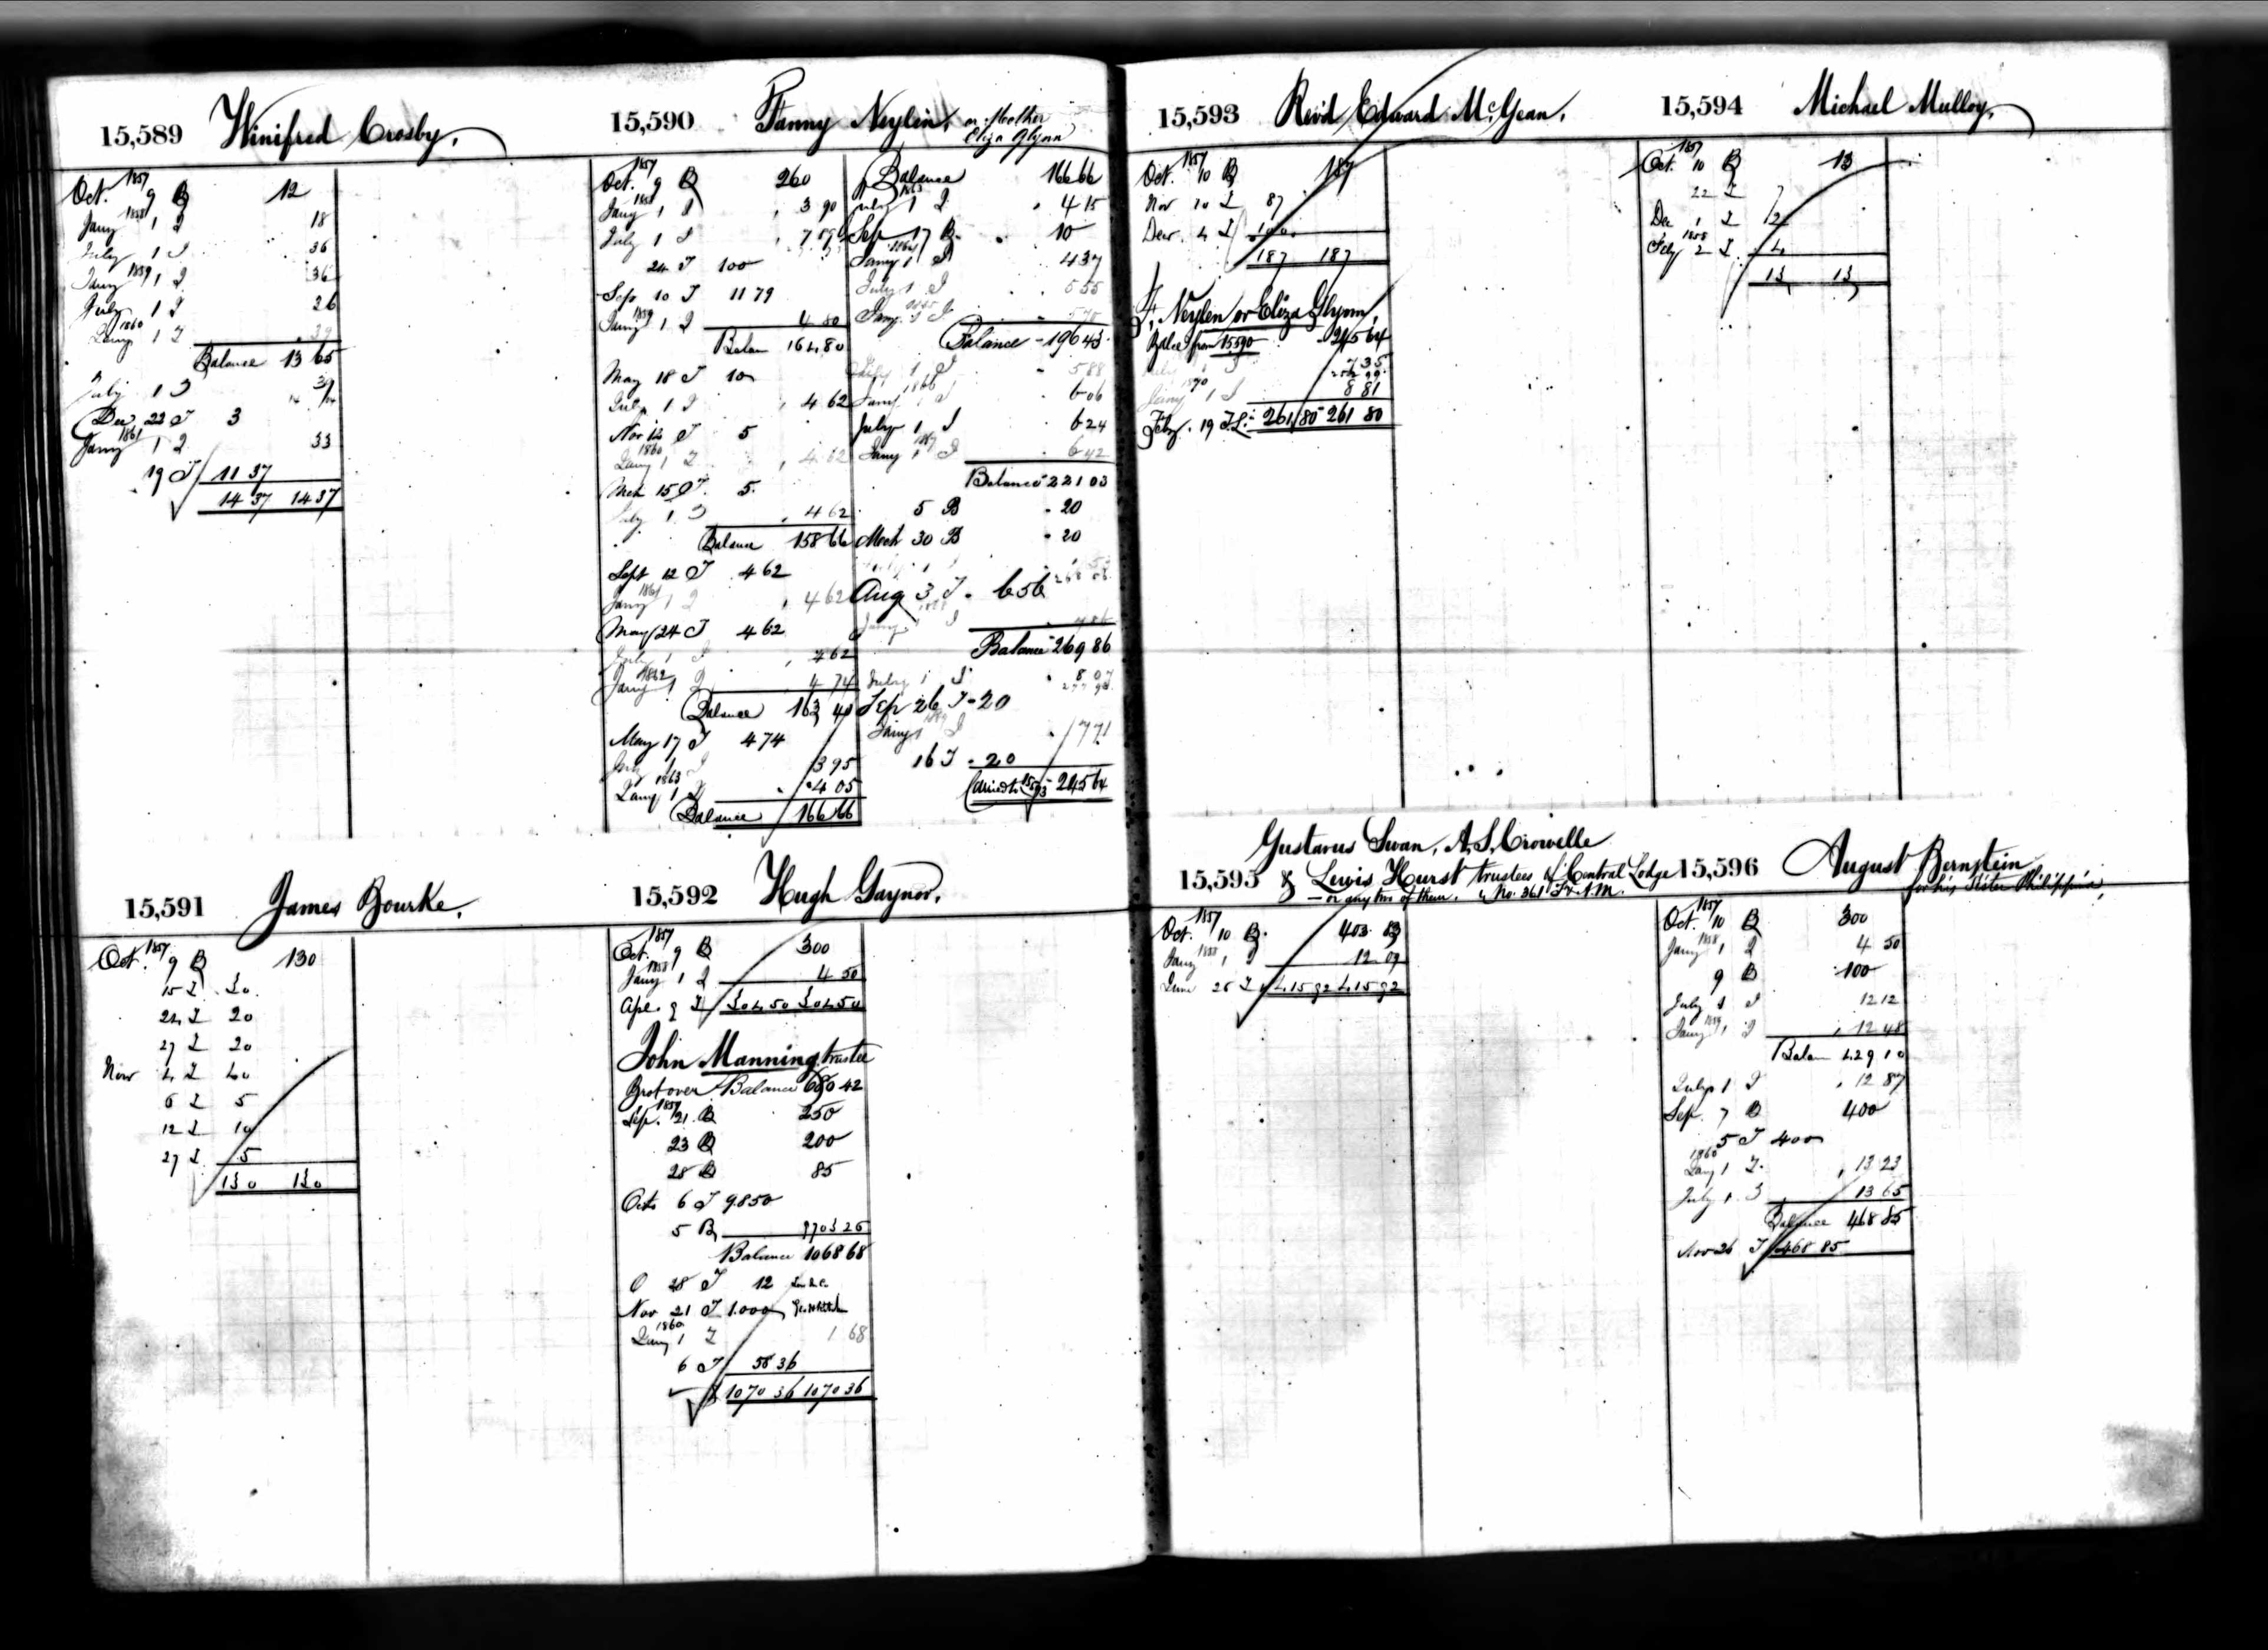 15,589 Winifred Crosby.
Oct. 1857 9 B 12
Jany 1858 1 I 18
July 1 I 36
Jany 1859 1 I 36
July 1 I 36
Jany 1860 1 I 39
Balance 13 65
July 1 I 39
Dec 22 T 3
Jany 1861 1 I 33
19 T 11 37
14 37 14 37
15,590 Fanny Neylin, or Mother
Eliza Glynn
Oct. 1857 9 B 260
Jany 1858 1 I 3 90
July 1 I
24 T 100
Sep 10 T 11 79
Jany 1859 1 I 4 80
Balan 164 80
May 18 T 10
July 1 I 4 62
Nov 12 T 5
1860
Jany 1 I 4 62
Mch 15 T 5
July 1 I 4 62
Balance 158 66
Sept 12 T 4 62
Jany 1861 1 I 4 62
May 24 T 4 62
July 1 I 4 62
Jany 1862 1 I 4 74
Balance 163 40
May 17 T 4 74
July 1 I 3 95
1863
Jany 1 I 4 05
Balance 166 66
Balance 166 66
1863
July 1 I 4 15
Sep 17 B 10
1864
Jany 1 I 4 37
July 1 I 5 55
Jany 1865 1 I 5 70
Balance 196 43
July 1 I 5 88
Jany 1866 1 I 6 06
July 1 I 6 24
Jany 1867 1 I 6 42
Balance 221 03
5 B 20
Mch 30 B 20
July 1 I
Aug 3 T 6 56
Jany 1868 I
Balance 269 86
July 1 I 8 07
277 93
Sep 26 T 20
Jany 1869 I 7 71
16 T 20
Carried to 15593 245 64
15,591 James Bourke.
Oct. 1857 9 B 130
15 I 30
24 I 20
27 I 20
Nov 4 I 40
6 I 5
12 I 10
27 I 5
130 130
15,592 Hugh Gaynor.
Oct. 1857 9 B 300
Jany 1858 1 I 4 50
Apl. 9 I 304 50 304 50
John Manning trustee
Brot over Balance 680 42
Sep. 1859 21 B 250
23 B 200
28 B 85
Octo 6 T 98 50
5 B
Balance 1068 68
O 28 T 12
Nov 21 T 1.000
1860
Jany 1 I 1 68
6 T 58 36
1070 36 1070 36
15,593 Revd Edward McGean.
Oct. 1857 10 B 187
Nov 20 I 87
Decr. 4 I 100
187 187
F. Neylen or Eliza Glynn,
Balce from 15590 245 64
July 1 I 7 35
252 99
Jany 1870 1 I 8 81
Feby. 19 T.L. 261 80 261 80
15,594 Michael Mulloy,
Oct. 1857 10 B 13
22 I 7
Dec 1 I 2
Feby 1858 2 I 4
13 13
Gustavus Swan, A. S. Crowelle
15,595 & Lewis Hurst trustees of Central Lodge
— or any two of them. No. 361 F. & A. M.
Oct. 1857 10 B. 403 83
Jany 1858 1 I 12 09
June 26 I 415 92 415 92
15,596 August Bernstein
for his Sister Philippina,
Oct. 1857 10 B 300
Jany 1858 1 I 4 50
9 B 100
July 1 I 12 12
Jany 1859 1 I 12 48
Balan 429 10
July 1 I 12 87
Sep. 7 B 400
5 T 400
1860
Jany 1 I 13 23
July 1 I 13 65
Balance 468 85
Nov 26 T 468 85